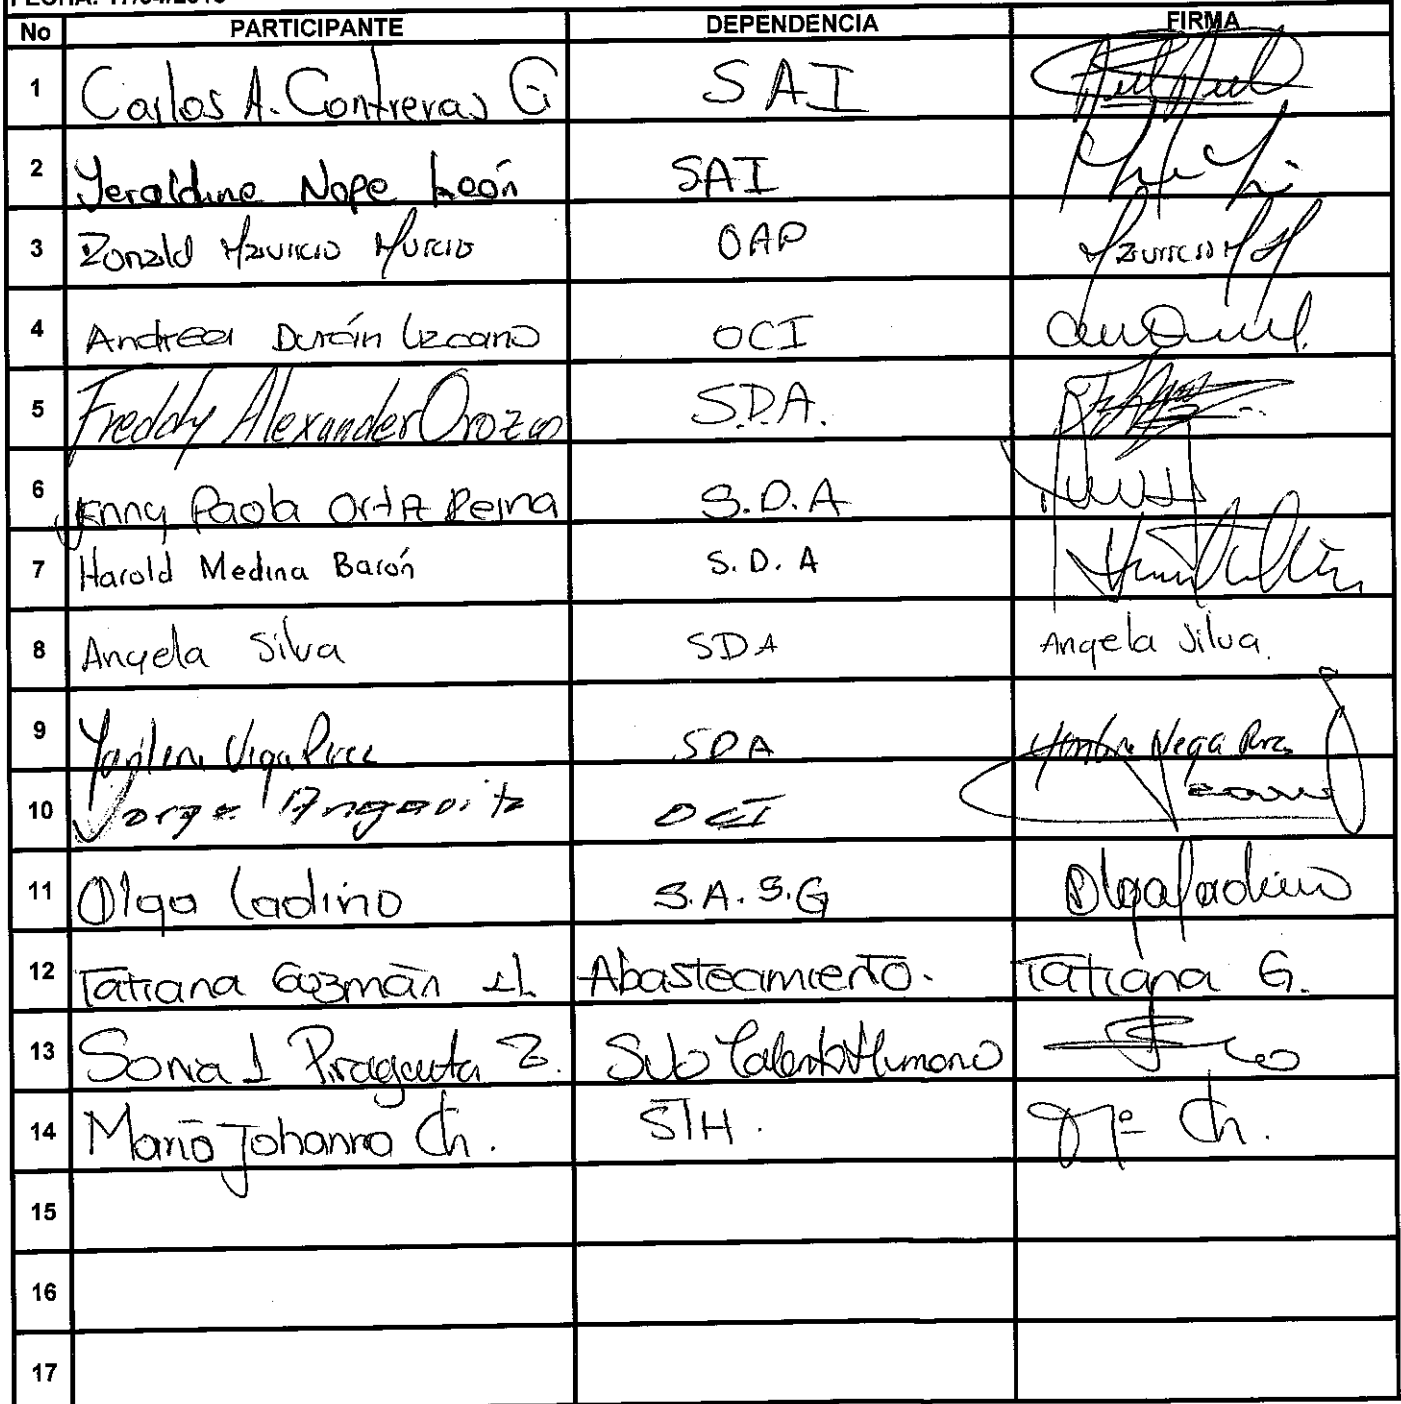 No PARTICIPANTE DEPENDENCIA FIRMA
1 Carlos A. Contreras G SAI
2 Yeraldine Nope León SAI
3 Ronald Mauricio Murcia OAP Mauricio
4 Andrea Durán Lizcano OCI
5 Freddy Alexander Orozco S.D.A.
6 Jenny Paola Ortiz Reina S.D.A
7 Harold Medina Barón S.D.A
8 Angela Silva SDA Angela Silva.
9 Vega SDA Vega
10 Jorge Angarita OCI
11 Olga Ladino S.A.S.G Olga Ladino
12 Tatiana Guzmán Abastecimiento. Tatiana G.
13 Sonia Piragauta Sub Talento Humano
14 Maria Johanna Ch. STH. Mª Ch.
15
16
17